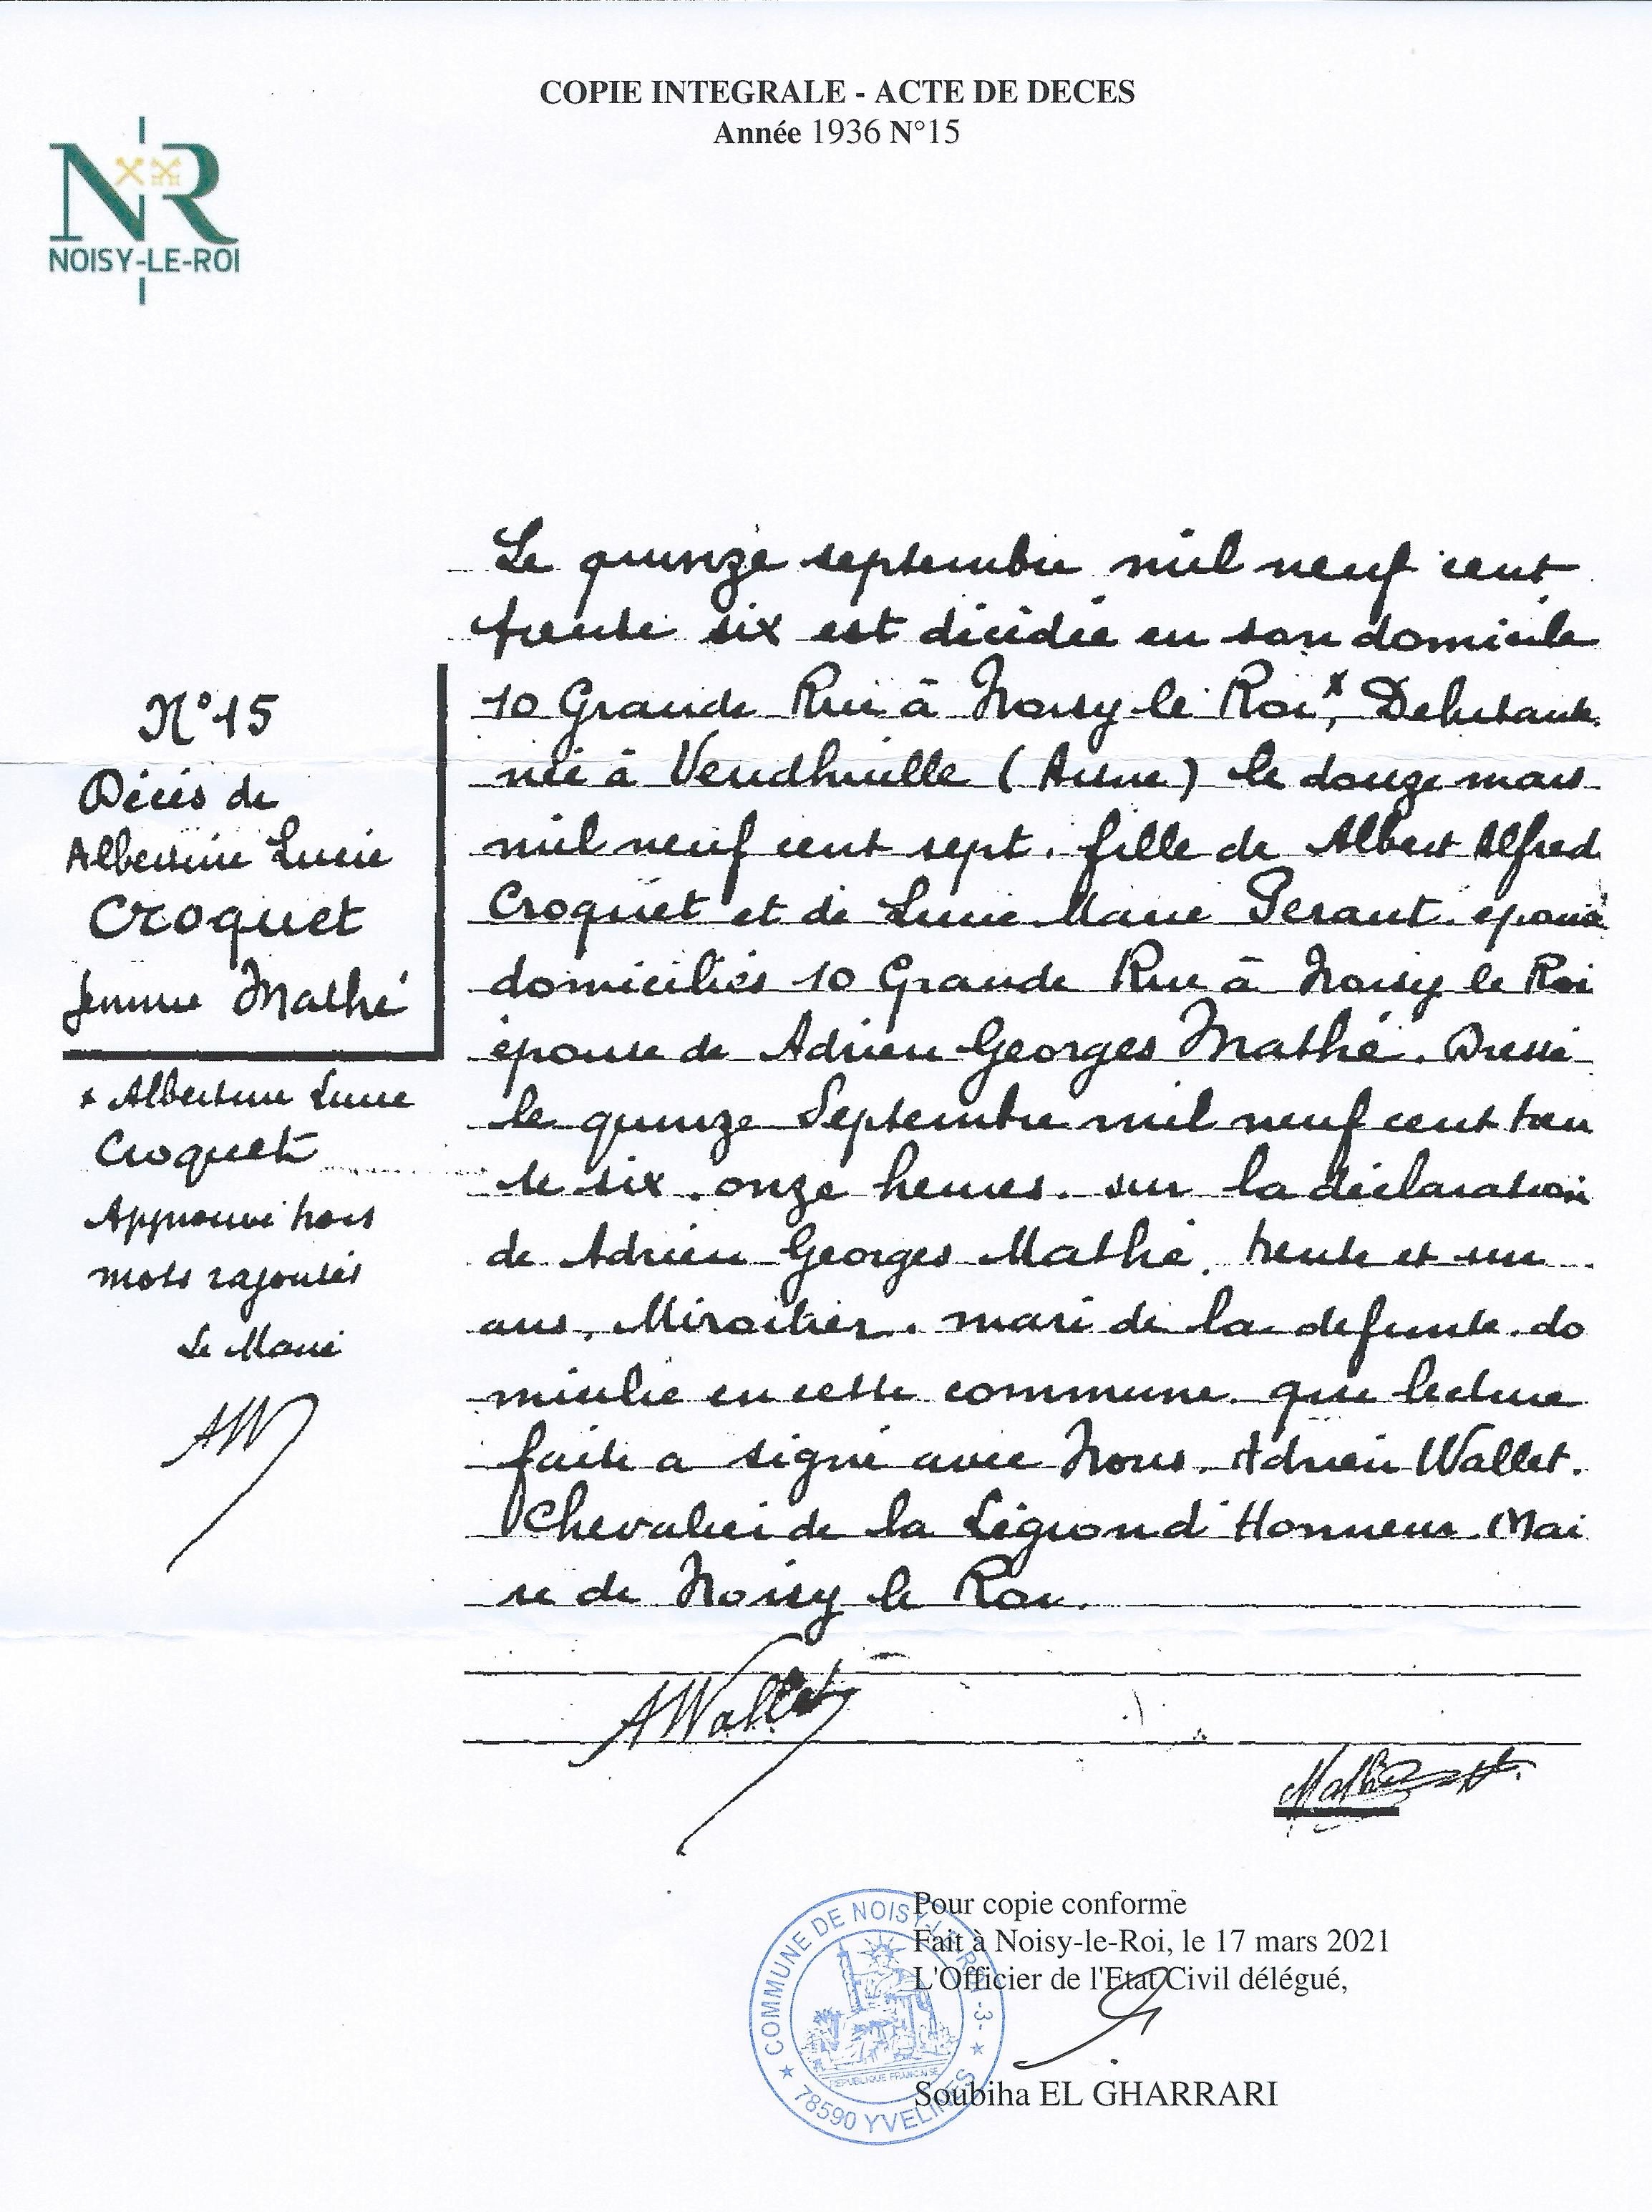 COPIE INTEGRALE - ACTE DE DECES
Année 1936 N°15
NR
NOISY-LE-ROI
N° 15
Décés de
Albertine Lucie
Croquet
femme Mathé
* Albertine Lucie
Croquet
Approuvé trois
mots rajoutés
Le Maire
AW
Le quinze septembre mil neuf cent
trente six est décédée en son domicile
10 Grande Rue à Noisy le Roi, x Debutante
née à Vendhuille (Aisne) le douze mars
mil neuf cent sept. fille de Albert Alfred
Croquet et de Lucie Marie Perant. epoux
domiciliés 10 Grande Rue à Noisy le Roi
épouse de Adrien Georges Mathé. Dressé
le quinze Septembre mil neuf cent tren
te six. onze heures. sur la déclaration
de Adrien Georges Mathé. trente et un
ans. Miroitier. mari de la defunte. do
micilié en cette commune. que lecture
faite a signé avec Nous. Adrien Wallet.
Chevalier de la Légion d'Honneur Mai
re de Noisy le Roi.
AWallet
Mathé
Pour copie conforme
Fait à Noisy-le-Roi, le 17 mars 2021
L'Officier de l'Etat Civil délégué,
Soubiha EL GHARRARI
COMMUNE DE NOISY-LE-ROI -3-
REPUBLIQUE FRANCAISE
★ 78590 YVELINES ★